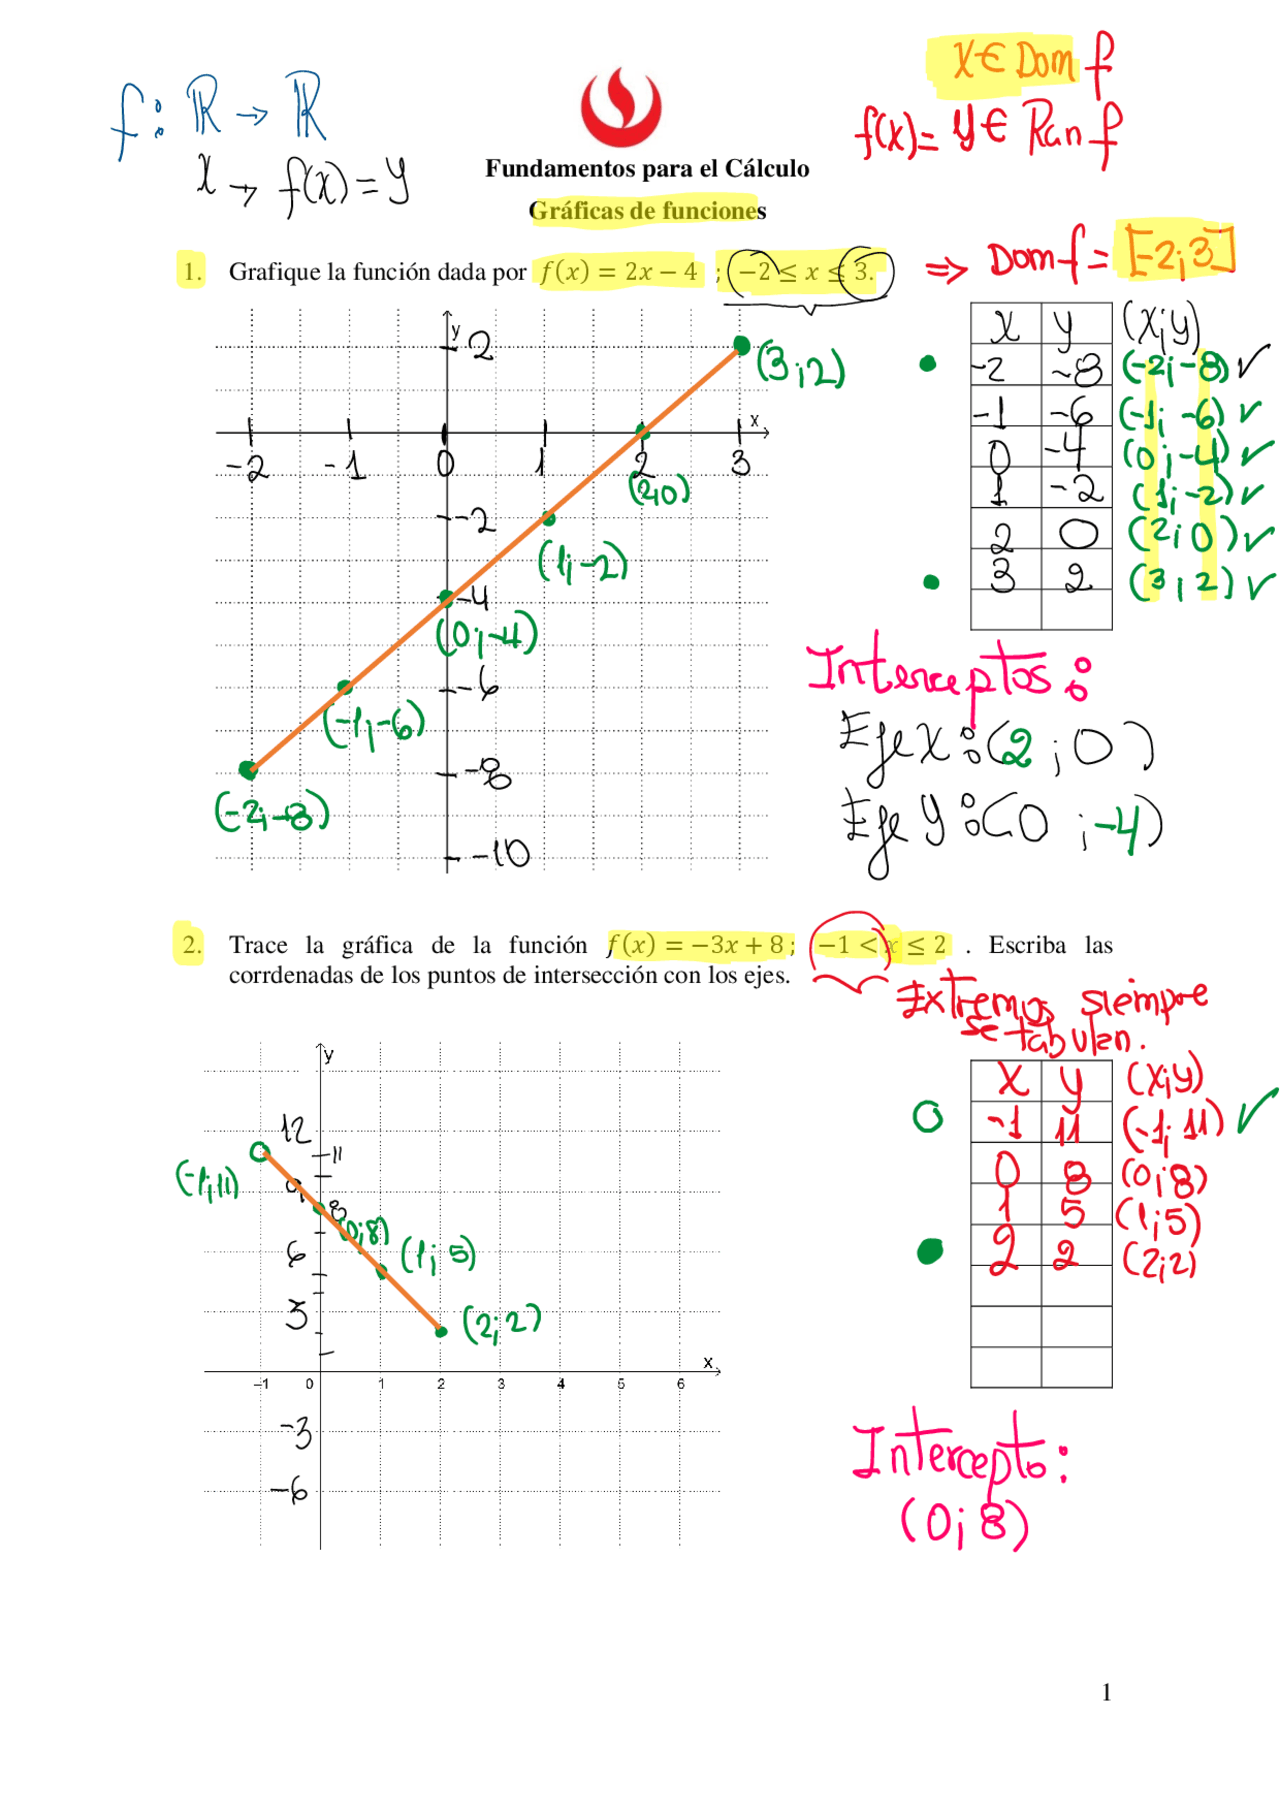 f: ℝ → ℝ
x → f(x) = y
x ∈ Dom f
f(x) = y ∈ Ran f
Fundamentos para el Cálculo
Gráficas de funciones
1. Grafique la función dada por f(x) = 2x − 4 ; −2 ≤ x ≤ 3.
⇒ Dom f = [-2;3]
y
2
(3;2)
x
-2 -1 0 1 2 3
(2;0)
-2
(1;-2)
-4
(0;-4)
-6
(-1;-6)
-8
(-2;-8)
-10
x y (x;y)
-2 -8 (-2;-8) ✓
-1 -6 (-1;-6) ✓
0 -4 (0;-4) ✓
1 -2 (1;-2) ✓
2 0 (2;0) ✓
3 2 (3;2) ✓
Interceptos:
Eje X: (2;0)
Eje Y: (0;-4)
2. Trace la gráfica de la función f(x) = −3x + 8; −1 < x ≤ 2 . Escriba las
corrdenadas de los puntos de intersección con los ejes.
Extremos siempre
se tabulan.
y
12
11
(-1;11)
9
8
(0;8)
6
(1;5)
3
(2;2)
x
−1 0 1 2 3 4 5 6
-3
-6
x y (x;y)
-1 11 (-1;11) ✓
0 8 (0;8)
1 5 (1;5)
2 2 (2;2)
Intercepto:
(0;8)
1